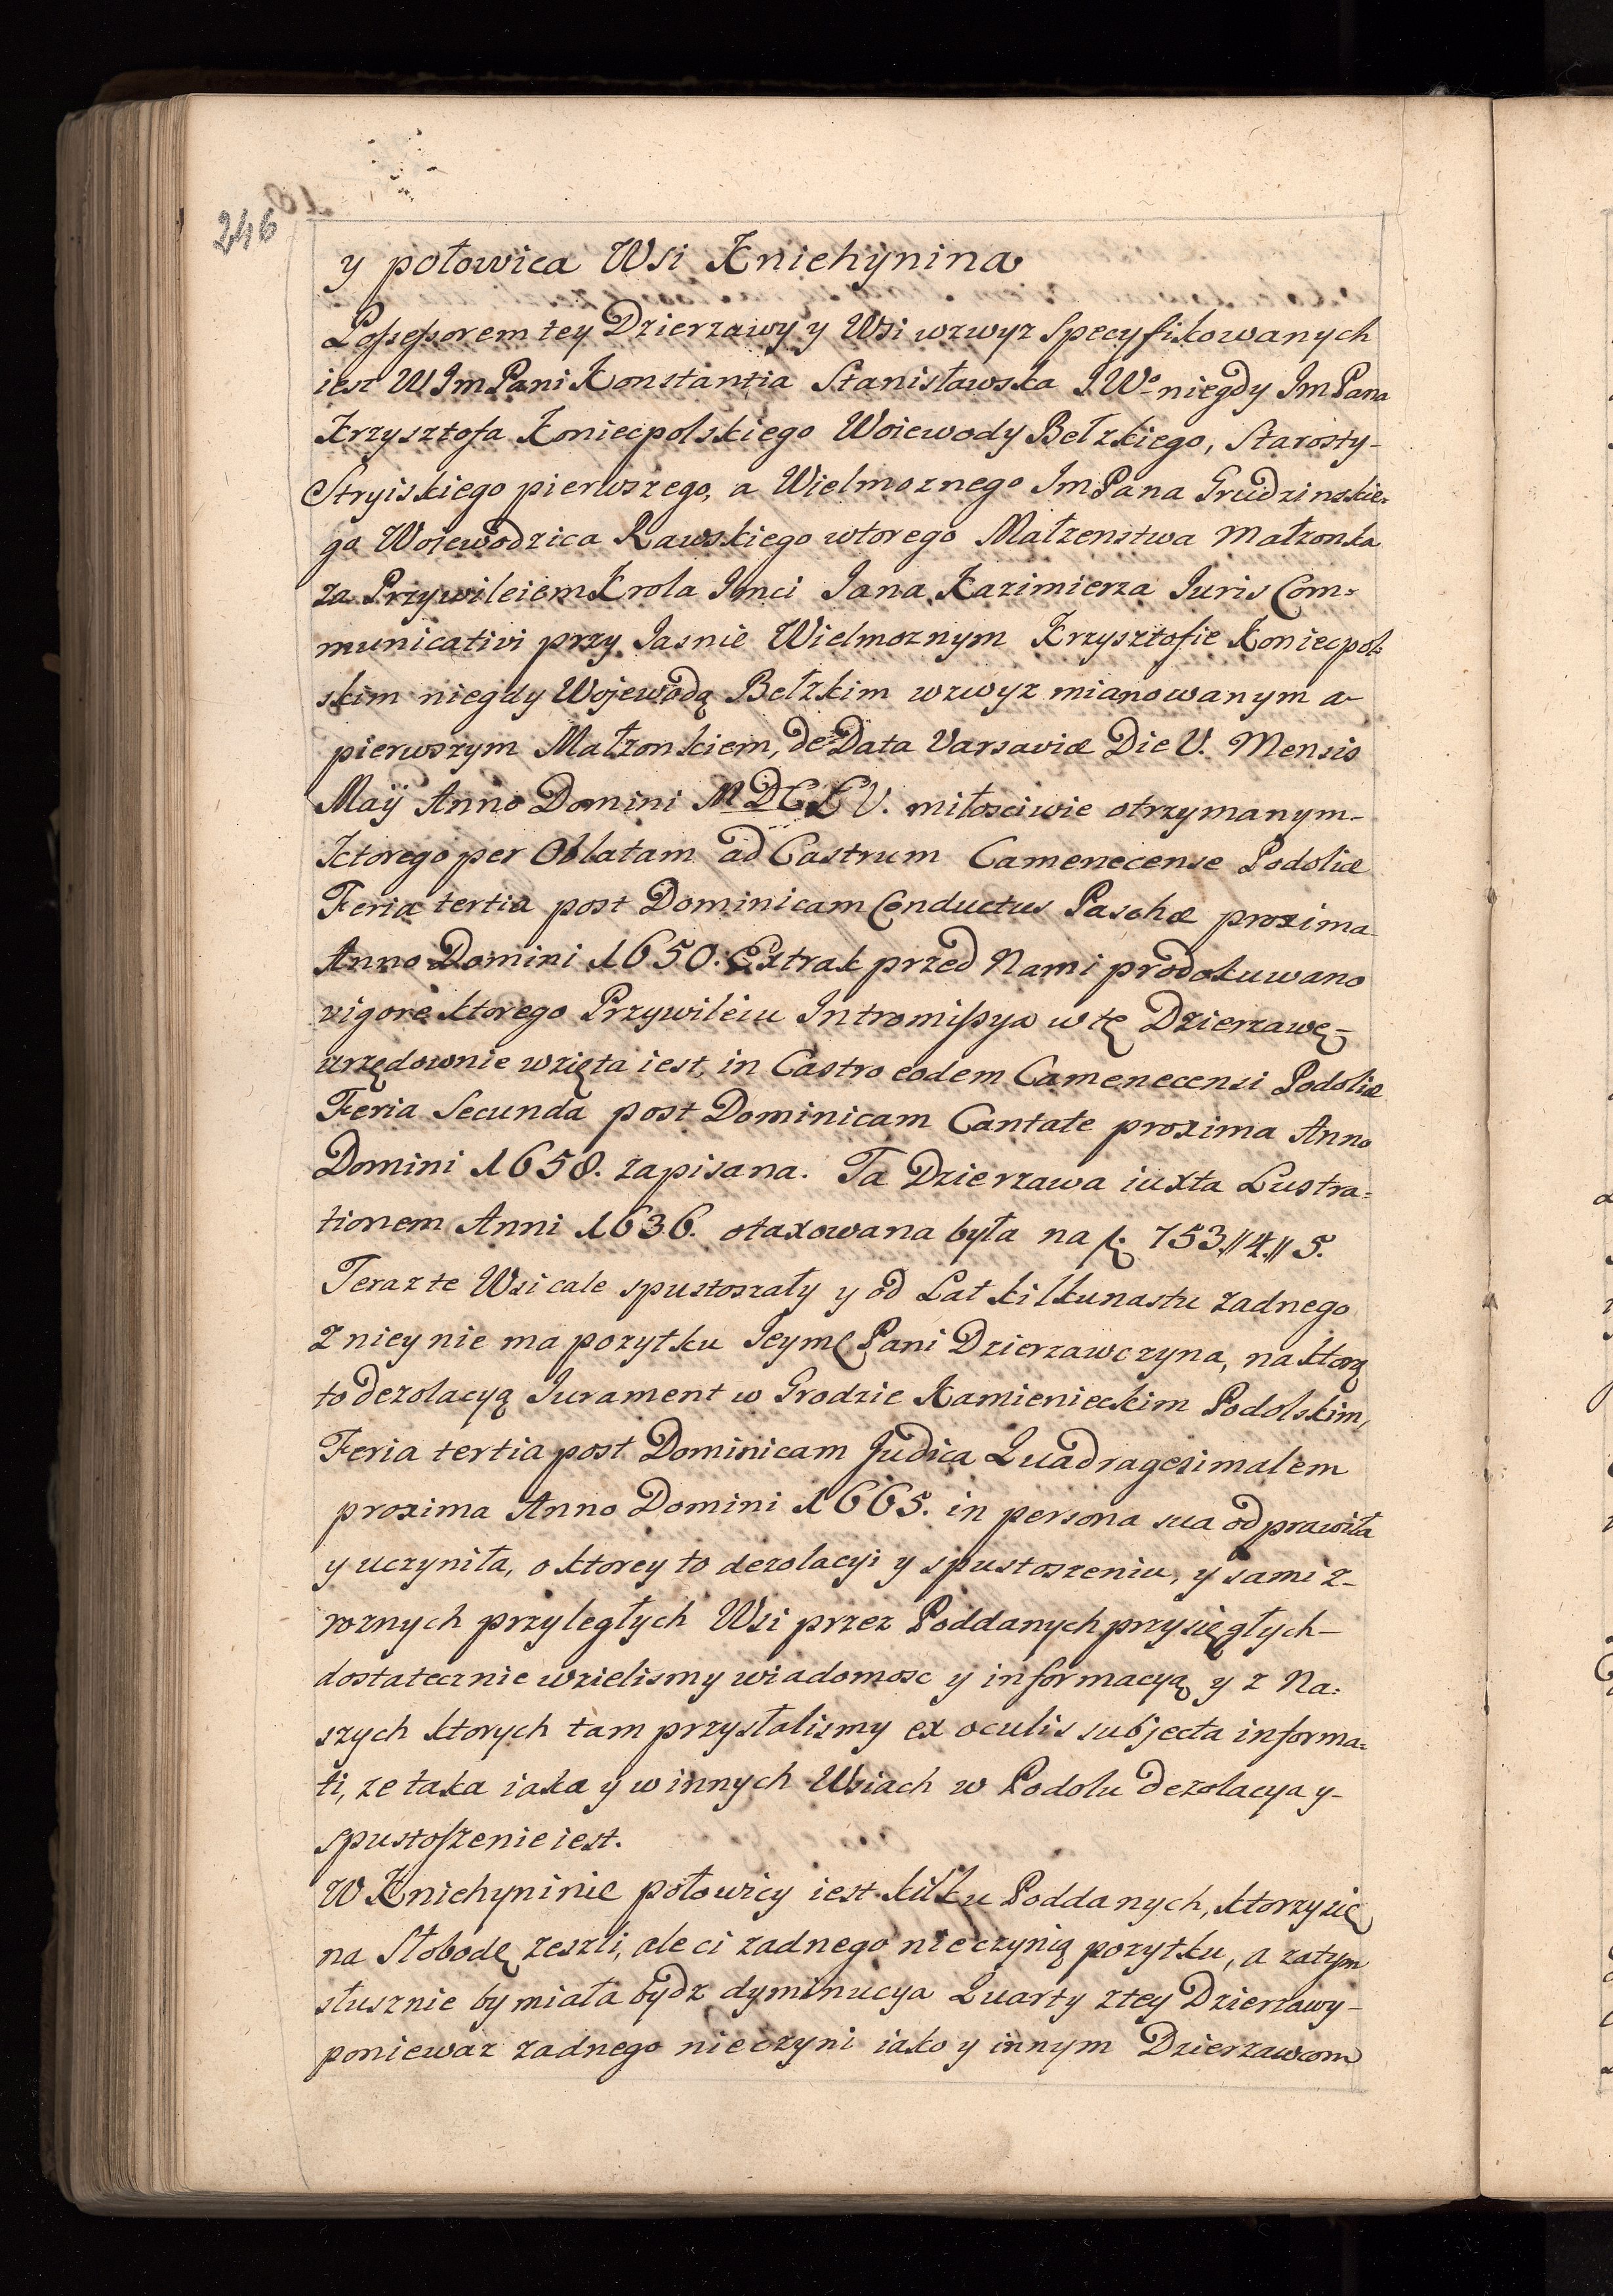 246
y połowica Wsi Kniehÿnina
Possessorem tey Dzierzawy y Wsi wzwyz Specyfikowanych
iest WImPani Konstantia Stanisławska JWº niegdy ImPana
Krzysztofa Koniecpolskiego Woiewody Bełzkiego, Starosty-
Stryiskiego pierwszego, a Wielmoznego ImPana Grudzinskie=
go Woiewodzica Rawskiego wtorego Małzenstwa Małzonka
za Przywileiem Krola Jmci Jana Kazimierza Juris Com=
municativi przy Jasnie Wielmoznym Krzysztofie Koniecpol=
skim niegdy Wojewodą Bełzkim wzwyz mianowanym a
pierwszym Małzonkiem, de Data Varsaviæ Die V. Mensis
Maÿ Anno Domini MDCLV. miłosciwie otrzymanym-
Ktorego per Oblatam ad Castrum Camenecense Podoliæ
Feria tertia post Dominicam Conductus Paschæ proxima
Anno Domini 1650. Extrakt przed Nami prodokuwano
vigore ktorego Przywileiu Intromissya w tę Dzierzawę-
urzędownie wzięta iest, in Castro eodem Camenecensi Podoliæ
Feria Secunda post Dominicam Cantate proxima Anno
Domini 1658. zapisana. Ta Dzierzawa iuxta Lustra=
tionem Anni 1636. otaxowana była na f: 753.//4.//5.
Teraz te Wsi cale spustoszały y od Lat kilkunastu zadnego
Z niey nie ma pozytku Jeymć Pani Dzierzawczyna, na ktorą
to dezolacyą Jurament w Grodzie Kamienieckim Podolskim,
Feria tertia post Dominicam Judica Quadragesimalem
proxima Anno Domini 1665. in persona sua odprawiła
y uczyniła, o ktorey to dezolacyi y spustoszeniu, y sami z-
roznych przyległych Wsi przez Poddanych przysięgłych-
dostatecznie wzielismy wiadomosc y informacyą y z Na=
szych ktorych tam przysłalismy ex oculis subjecta informa=
ti, ze taka iaka y w innych Wsiach w Podolu dezolacya y-
spustoszenie iest.
W Kniehyninie połowicy iest kilku Poddanych, ktorzy się
na Słobodę zeszli, ale ci zadnego nieczynią pozytku, a zatym
słusznie by miała bydz dyminucya Quarty z tey Dzierzawy-
poniewaz zadnego nieczyni iako y innym Dzierzawcom